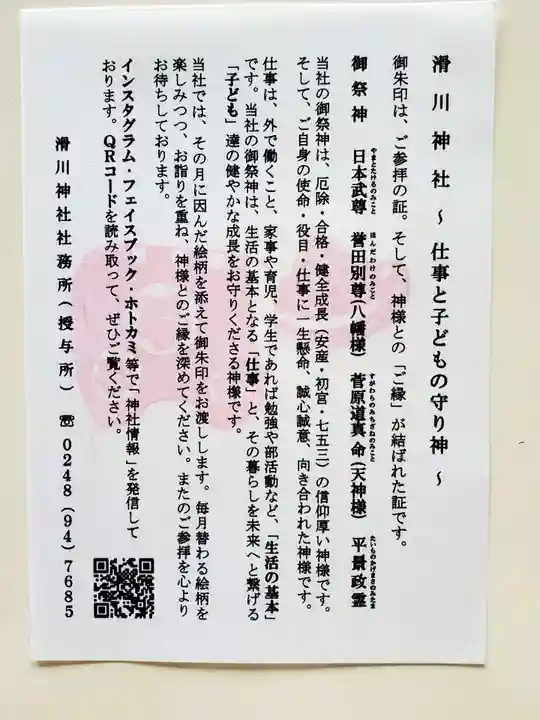 滑川神社 ～ 仕事と子どもの守り神 ～
御朱印は、ご参拝の証。そして、神様との「ご縁」が結ばれた証です。
御祭神 日本武尊 誉田別尊(八幡様) 菅原道真命(天神様) 平景政霊
やまとたけるのみこと ほんだわけのみこと すがわらのみちざねのみこと たいらのかげまさのみたま
当社の御祭神は、厄除・合格・健全成長(安産・初宮・七五三)の信仰厚い神様です。
そして、ご自身の使命・役目・仕事に一生懸命、誠心誠意、向き合われた神様です。
仕事は、外で働くこと、家事や育児、学生であれば勉強や部活動など、「生活の基本」
です。当社の御祭神は、生活の基本となる「仕事」と、その暮らしを未来へと繋げる
「子ども」達の健やかな成長をお守りくださる神様です。
当社では、その月に因んだ絵柄を添えて御朱印をお渡しします。毎月替わる絵柄を
楽しみつつ、お詣りを重ね、神様とのご縁を深めてください。またのご参拝を心より
お待ちしております。
インスタグラム・フェイスブック・ホトカミ等で「神社情報」を発信して
おります。QRコードを読み取って、ぜひご覧ください。
滑川神社社務所(授与所) ☏0248(94)7685